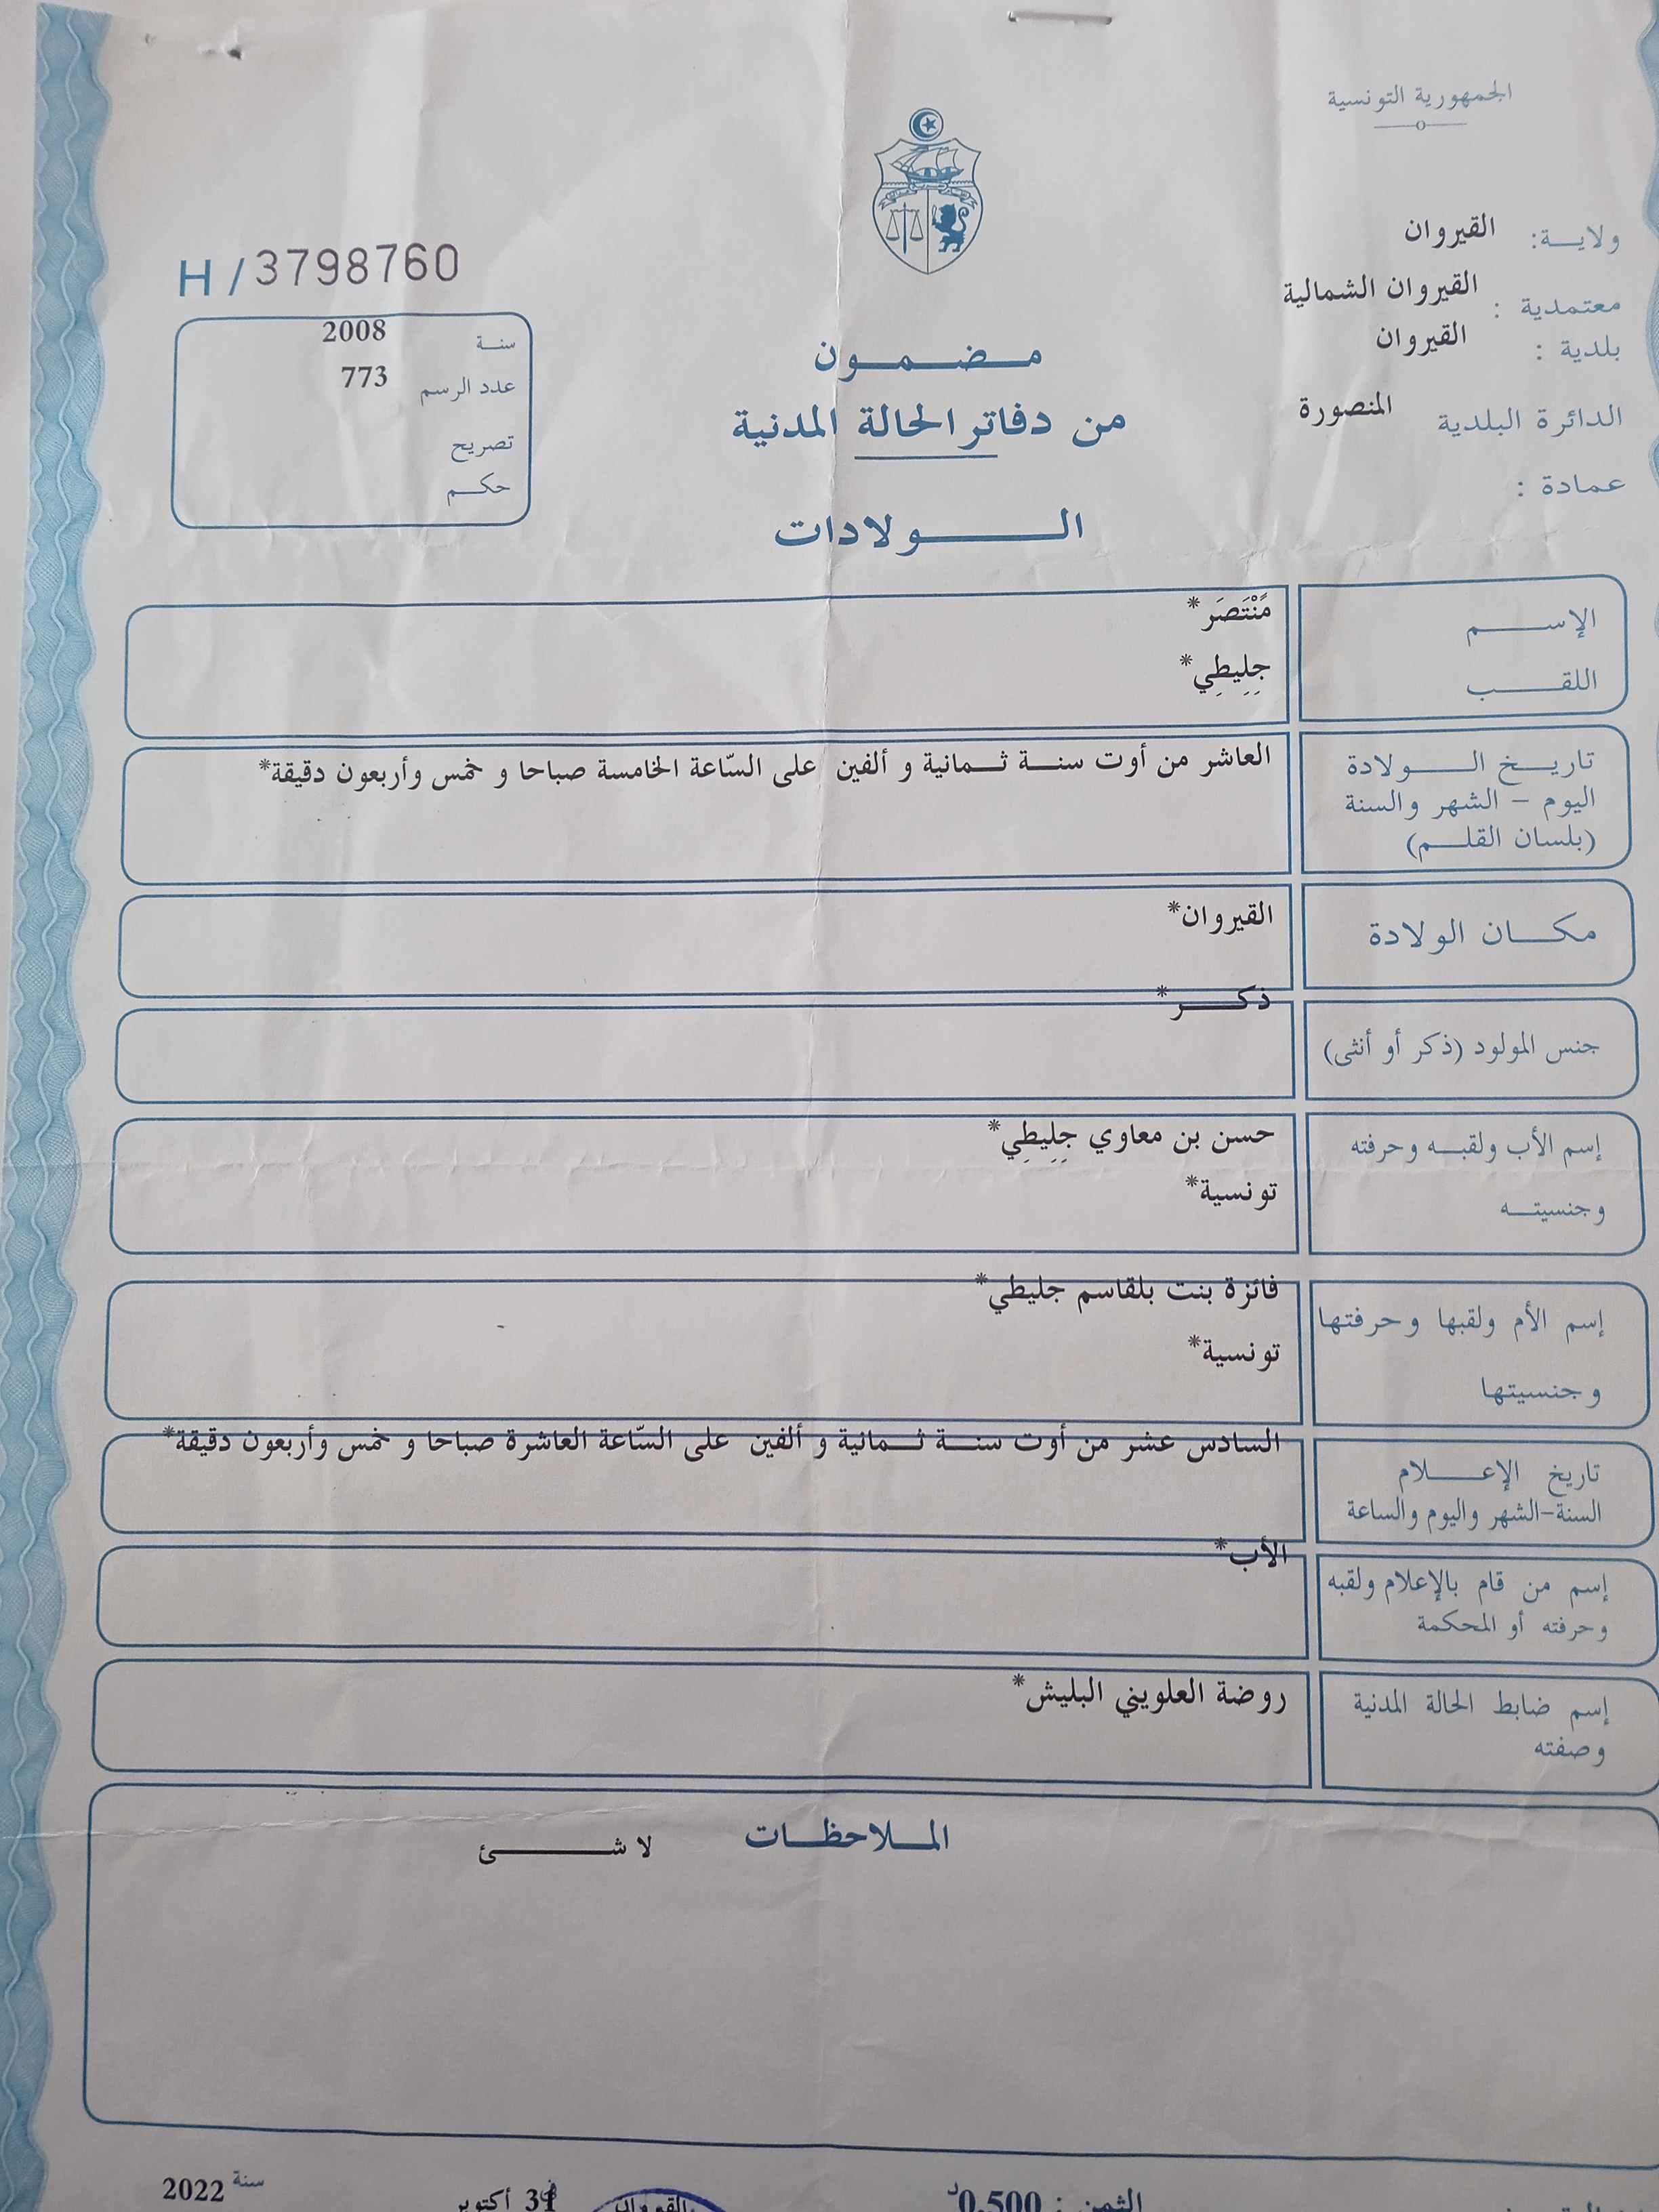 الجمهورية التونسية
ولايـــة: القيروان
معتمدية : القيروان الشمالية
بلدية : القيروان
الدائرة البلدية المنصورة
عمادة :
H / 3798760
سنـــة 2008
عدد الرسم 773
تصريح
حكـــم
مــضــمــون
من دفاتر الحالة المدنية
الـــولادات
الإســـــم مًنْتَصَر*
اللقـــــب جِلِيطِي*
تاريـــخ الـــــولادة العاشر من أوت سنـــة ثـــمانية و ألفين على السّاعة الخامسة صباحا و خمس وأربعون دقيقة*
اليوم – الشهر والسنة
(بلسان القلـــم)
مكـــان الولادة القيروان*
جنس المولود (ذكر أو أنثى) ذكـــر*
إسم الأب ولقبـــه وحرفته حسن بن معاوي جِلِيطِي*
وجنسيتـــه تونسية*
إسم الأم ولقبها وحرفتها فائزة بنت بلقاسم جليطي*
وجنسيتها تونسية*
تاريخ الإعـــــلام السادس عشر من أوت سنـــة ثـــمانية و ألفين على السّاعة العاشرة صباحا و خمس وأربعون دقيقة*
السنة-الشهر واليوم والساعة
إسم من قام بالإعلام ولقبه الأب*
وحرفته أو المحكمة
إسم ضابط الحالة المدنية روضة العلويني البليش*
وصفته
الملاحظـــات
لا شـــــئ
الثمن : 0,500د
أكتوبر
سنة 2022